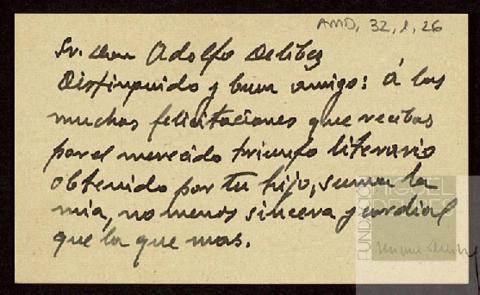 AMD, 32, 1, 26
Sr. Don Adolfo Delibes
Distinguido y buen amigo: Á las
muchas felicitaciones que recibas
por el merecido triunfo literario
obtenido por tu hijo, suma la
mia, no menos sincera y cordial
que la que mas.
FUNDACIÓN
MIGUEL
DELIBES